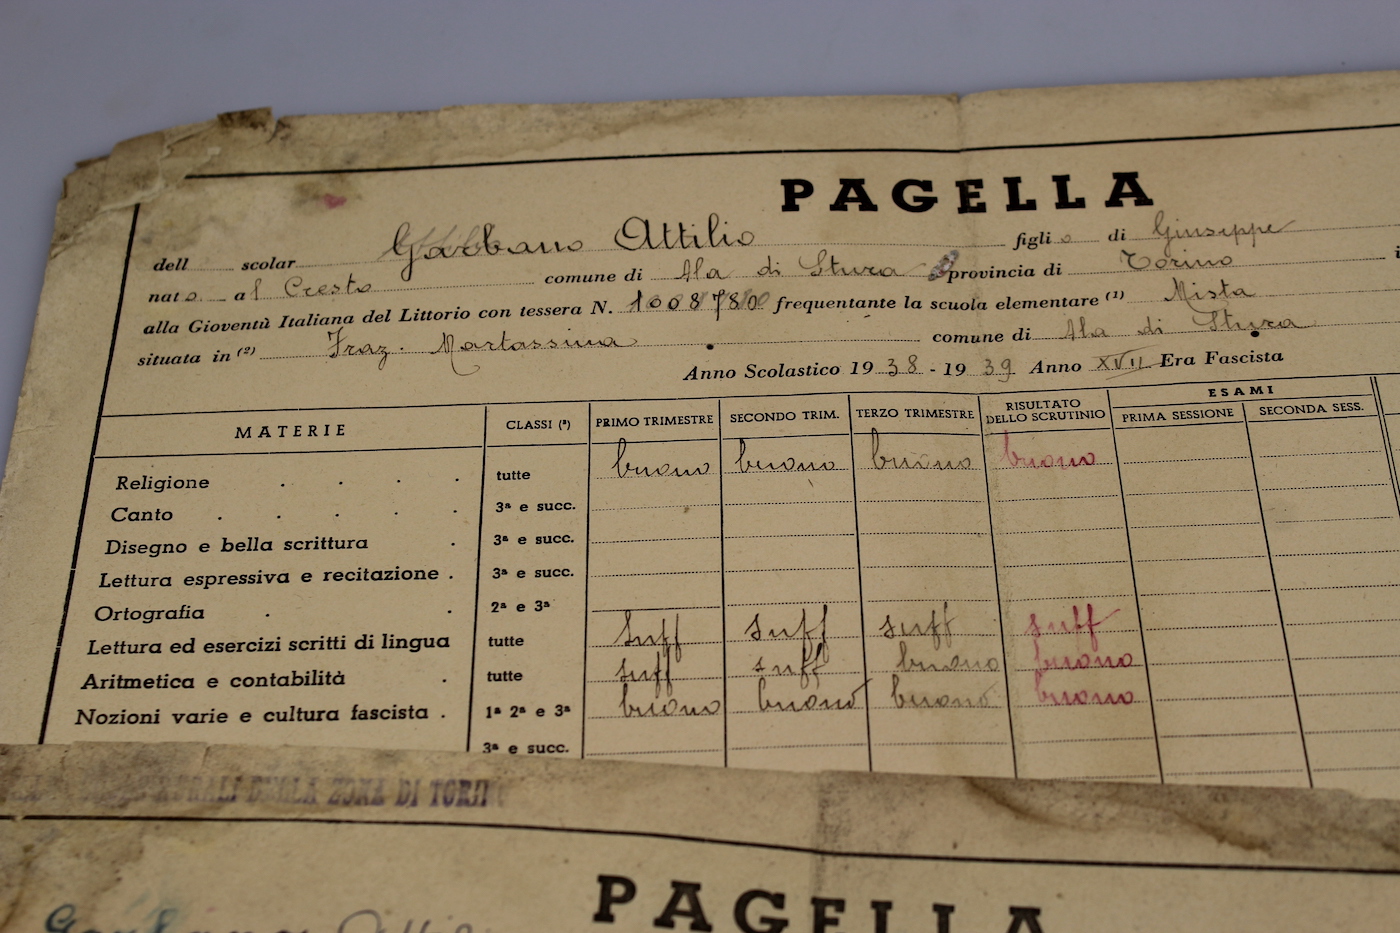 PAGELLA
dell scolar Garbano Attilio figlio di Giuseppe
nato al Cresto comune di Ala di Stura provincia di Torino i
alla Gioventù Italiana del Littorio con tessera N. 1008780 frequentante la scuola elementare (1) Mista
situata in (2) Fraz. Martassina comune di Ala di Stura
Anno Scolastico 1938 - 1939 Anno XVII Era Fascista
MATERIE CLASSI (3) PRIMO TRIMESTRE SECONDO TRIM. TERZO TRIMESTRE RISULTATO DELLO SCRUTINIO ESAMI PRIMA SESSIONE SECONDA SESS.
Religione tutte buono buono buono buono
Canto 3ª e succ.
Disegno e bella scrittura 3ª e succ.
Lettura espressiva e recitazione 3ª e succ.
Ortografia 2ª e 3ª
Lettura ed esercizi scritti di lingua tutte suff suff suff suff
Aritmetica e contabilità tutte suff suff buono buono
Nozioni varie e cultura fascista 1ª 2ª e 3ª buono buono buono buono
3ª e succ.
RURALI DELLA ZONA DI TORINO
PAGELLA
Garbano Attilio